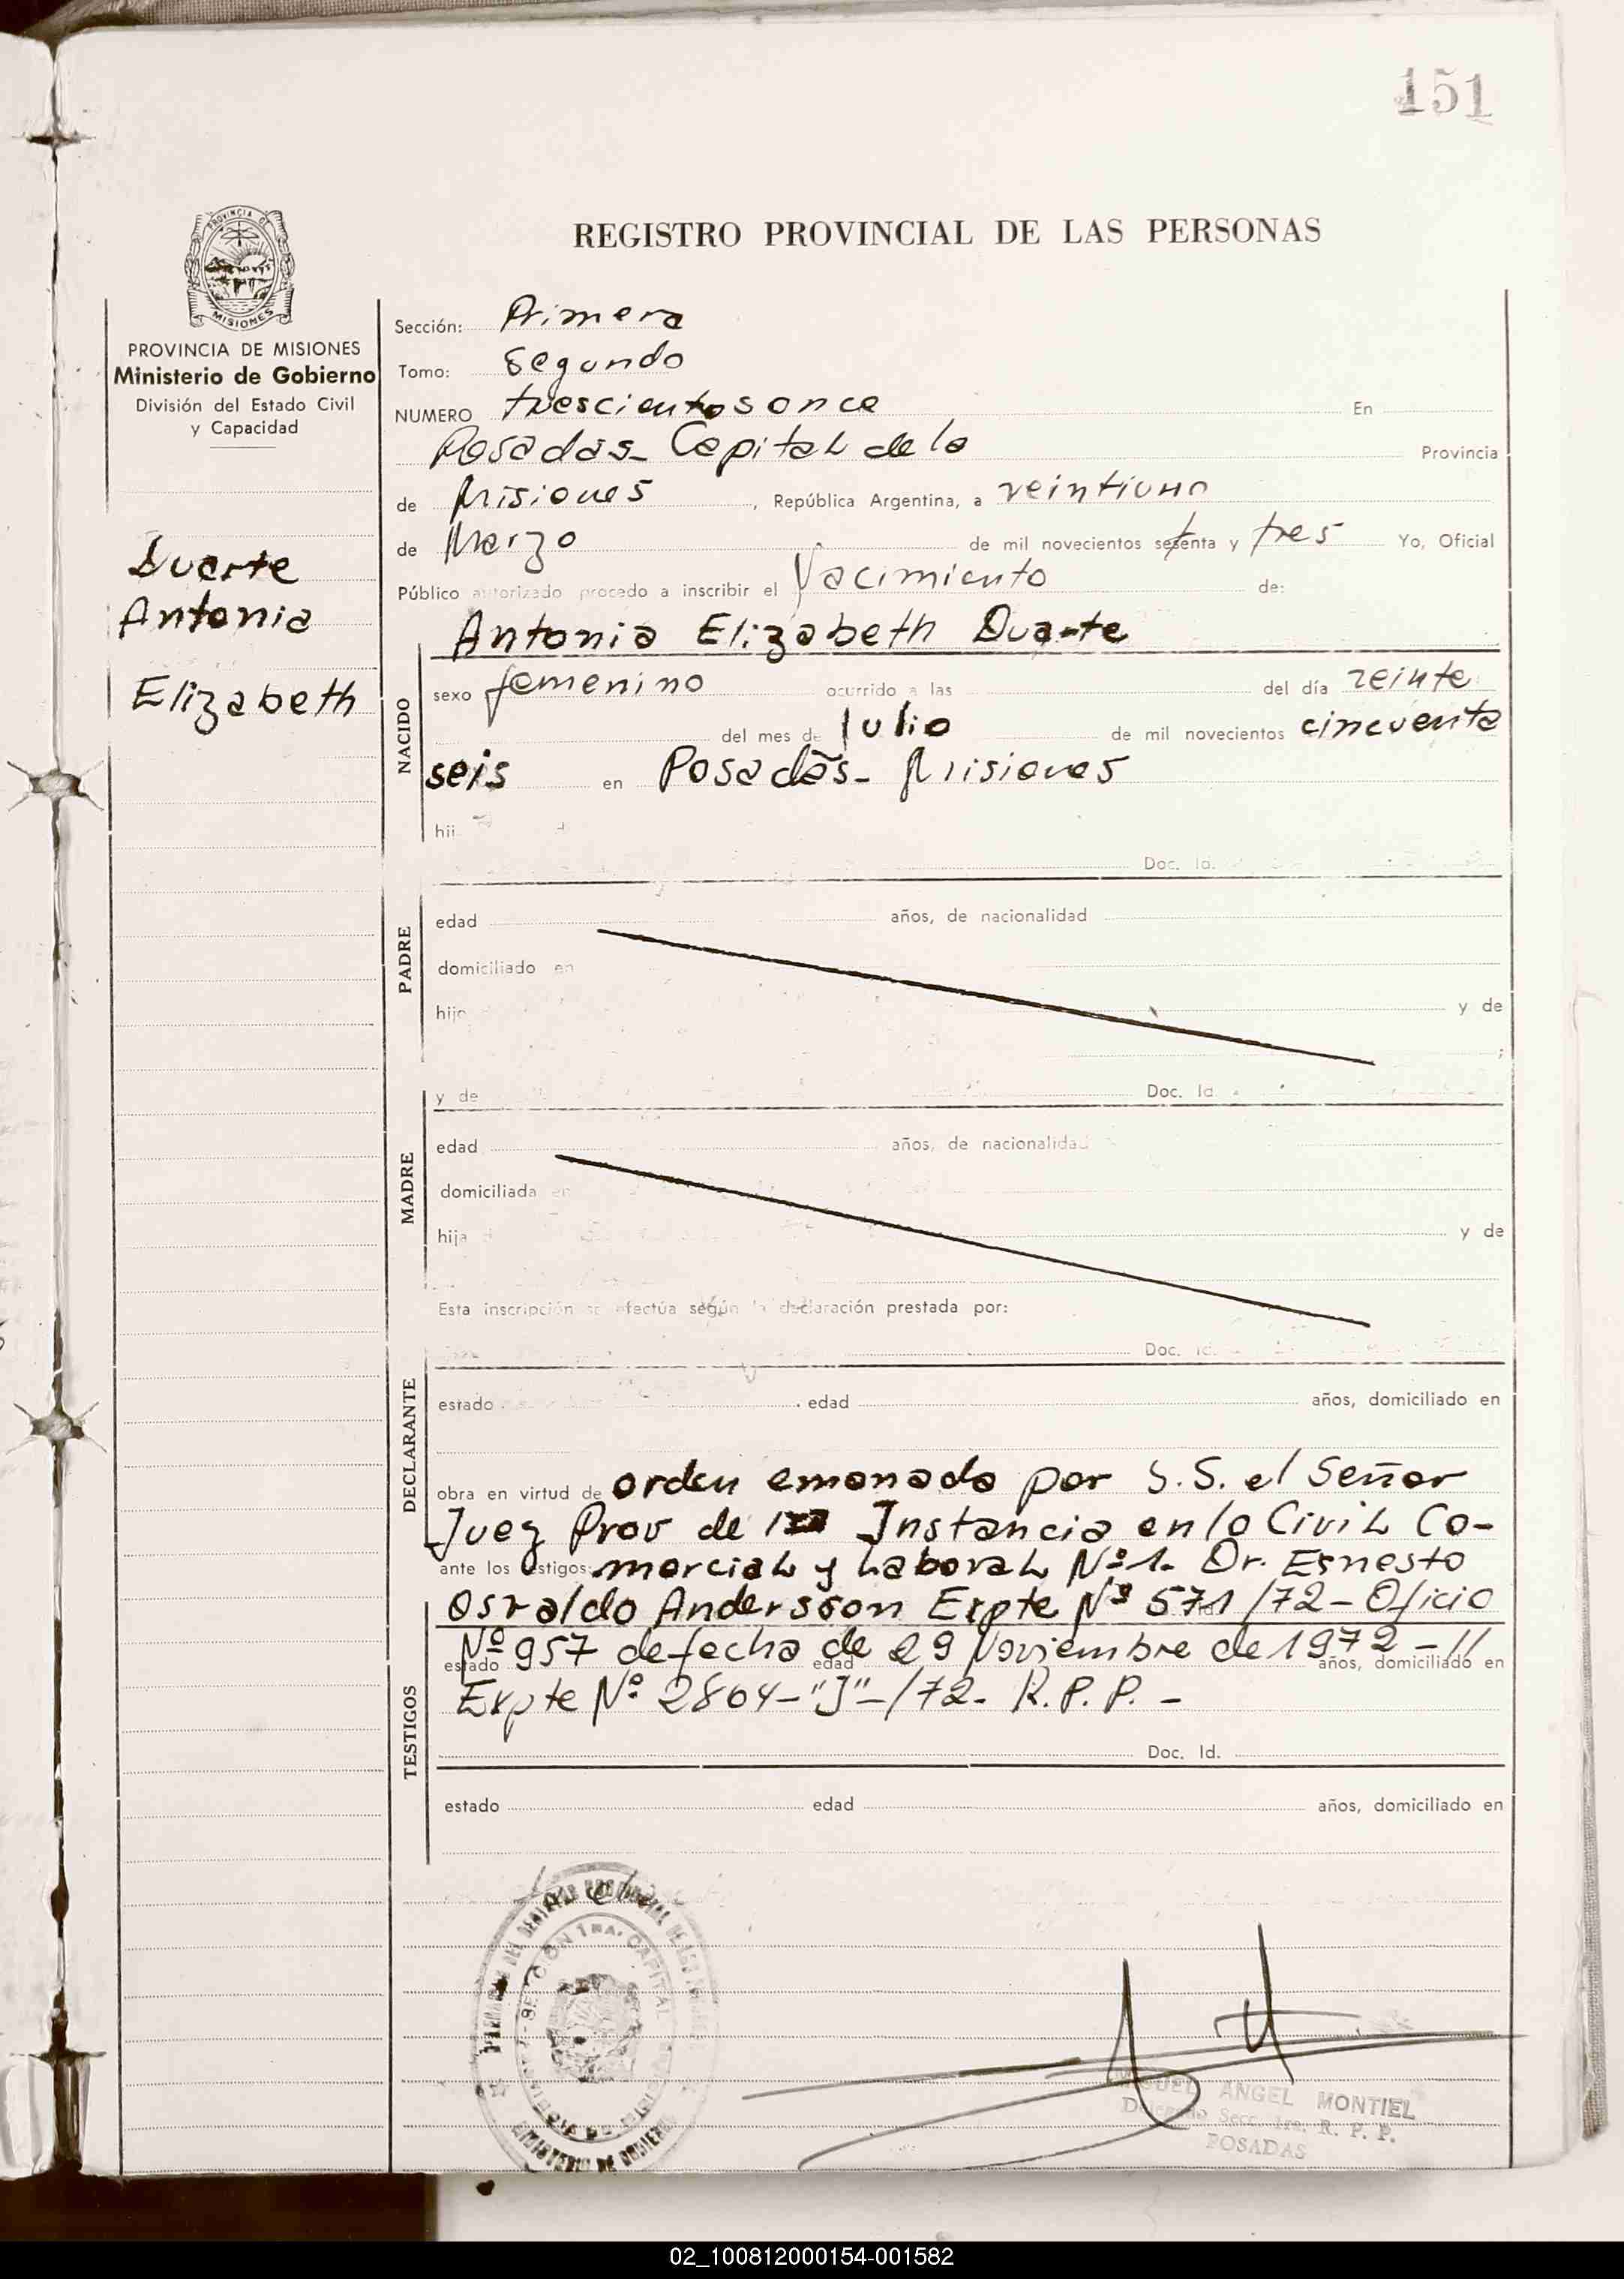 151
PROVINCIA DE
MISIONES
REGISTRO PROVINCIAL DE LAS PERSONAS
PROVINCIA DE MISIONES
Ministerio de Gobierno
División del Estado Civil
y Capacidad
Duarte
Antonia
Elizabeth
Sección: Primera
Tomo: Segundo
NUMERO trescientos once En
Posadas - Capital de la Provincia
de Misiones, República Argentina, a veintiuno
de Marzo de mil novecientos setenta y tres Yo, Oficial
Público autorizado procedo a inscribir el Nacimiento de:
Antonia Elizabeth Duarte
NACIDO
sexo femenino ocurrido a las del día veinte
del mes de Julio de mil novecientos cincuenta
seis en Posadas - Misiones
hij
Doc. Id.
PADRE
edad años, de nacionalidad
domiciliado en
hijo y de
;
y de Doc. Id.
MADRE
edad años, de nacionalidad
domiciliada en
hija d y de
Esta inscripción se efectúa según la declaración prestada por:
Doc. Id.
DECLARANTE
estado edad años, domiciliado en
obra en virtud de orden emanada por S.S. el Señor
Juez Prov de 1ra Instancia en lo Civil Co-
ante los testigos: mercial y Laboral Nº 1. Dr. Ernesto
Osvaldo Andersson Expte Nº 571/72 - Oficio
Nº 957 de fecha de 29 Noviembre de 1972 - //
estado edad años, domiciliado en
Expte Nº 2864 - "J" - /72 - R.P.P. -
TESTIGOS
Doc. Id.
estado edad años, domiciliado en
SECCION 1RA. CAPITAL
MINISTERIO DE GOBIERNO
MIGUEL ANGEL MONTIEL
Delegado Secc. 1ra. R. P. P.
POSADAS
02_100812000154-001582